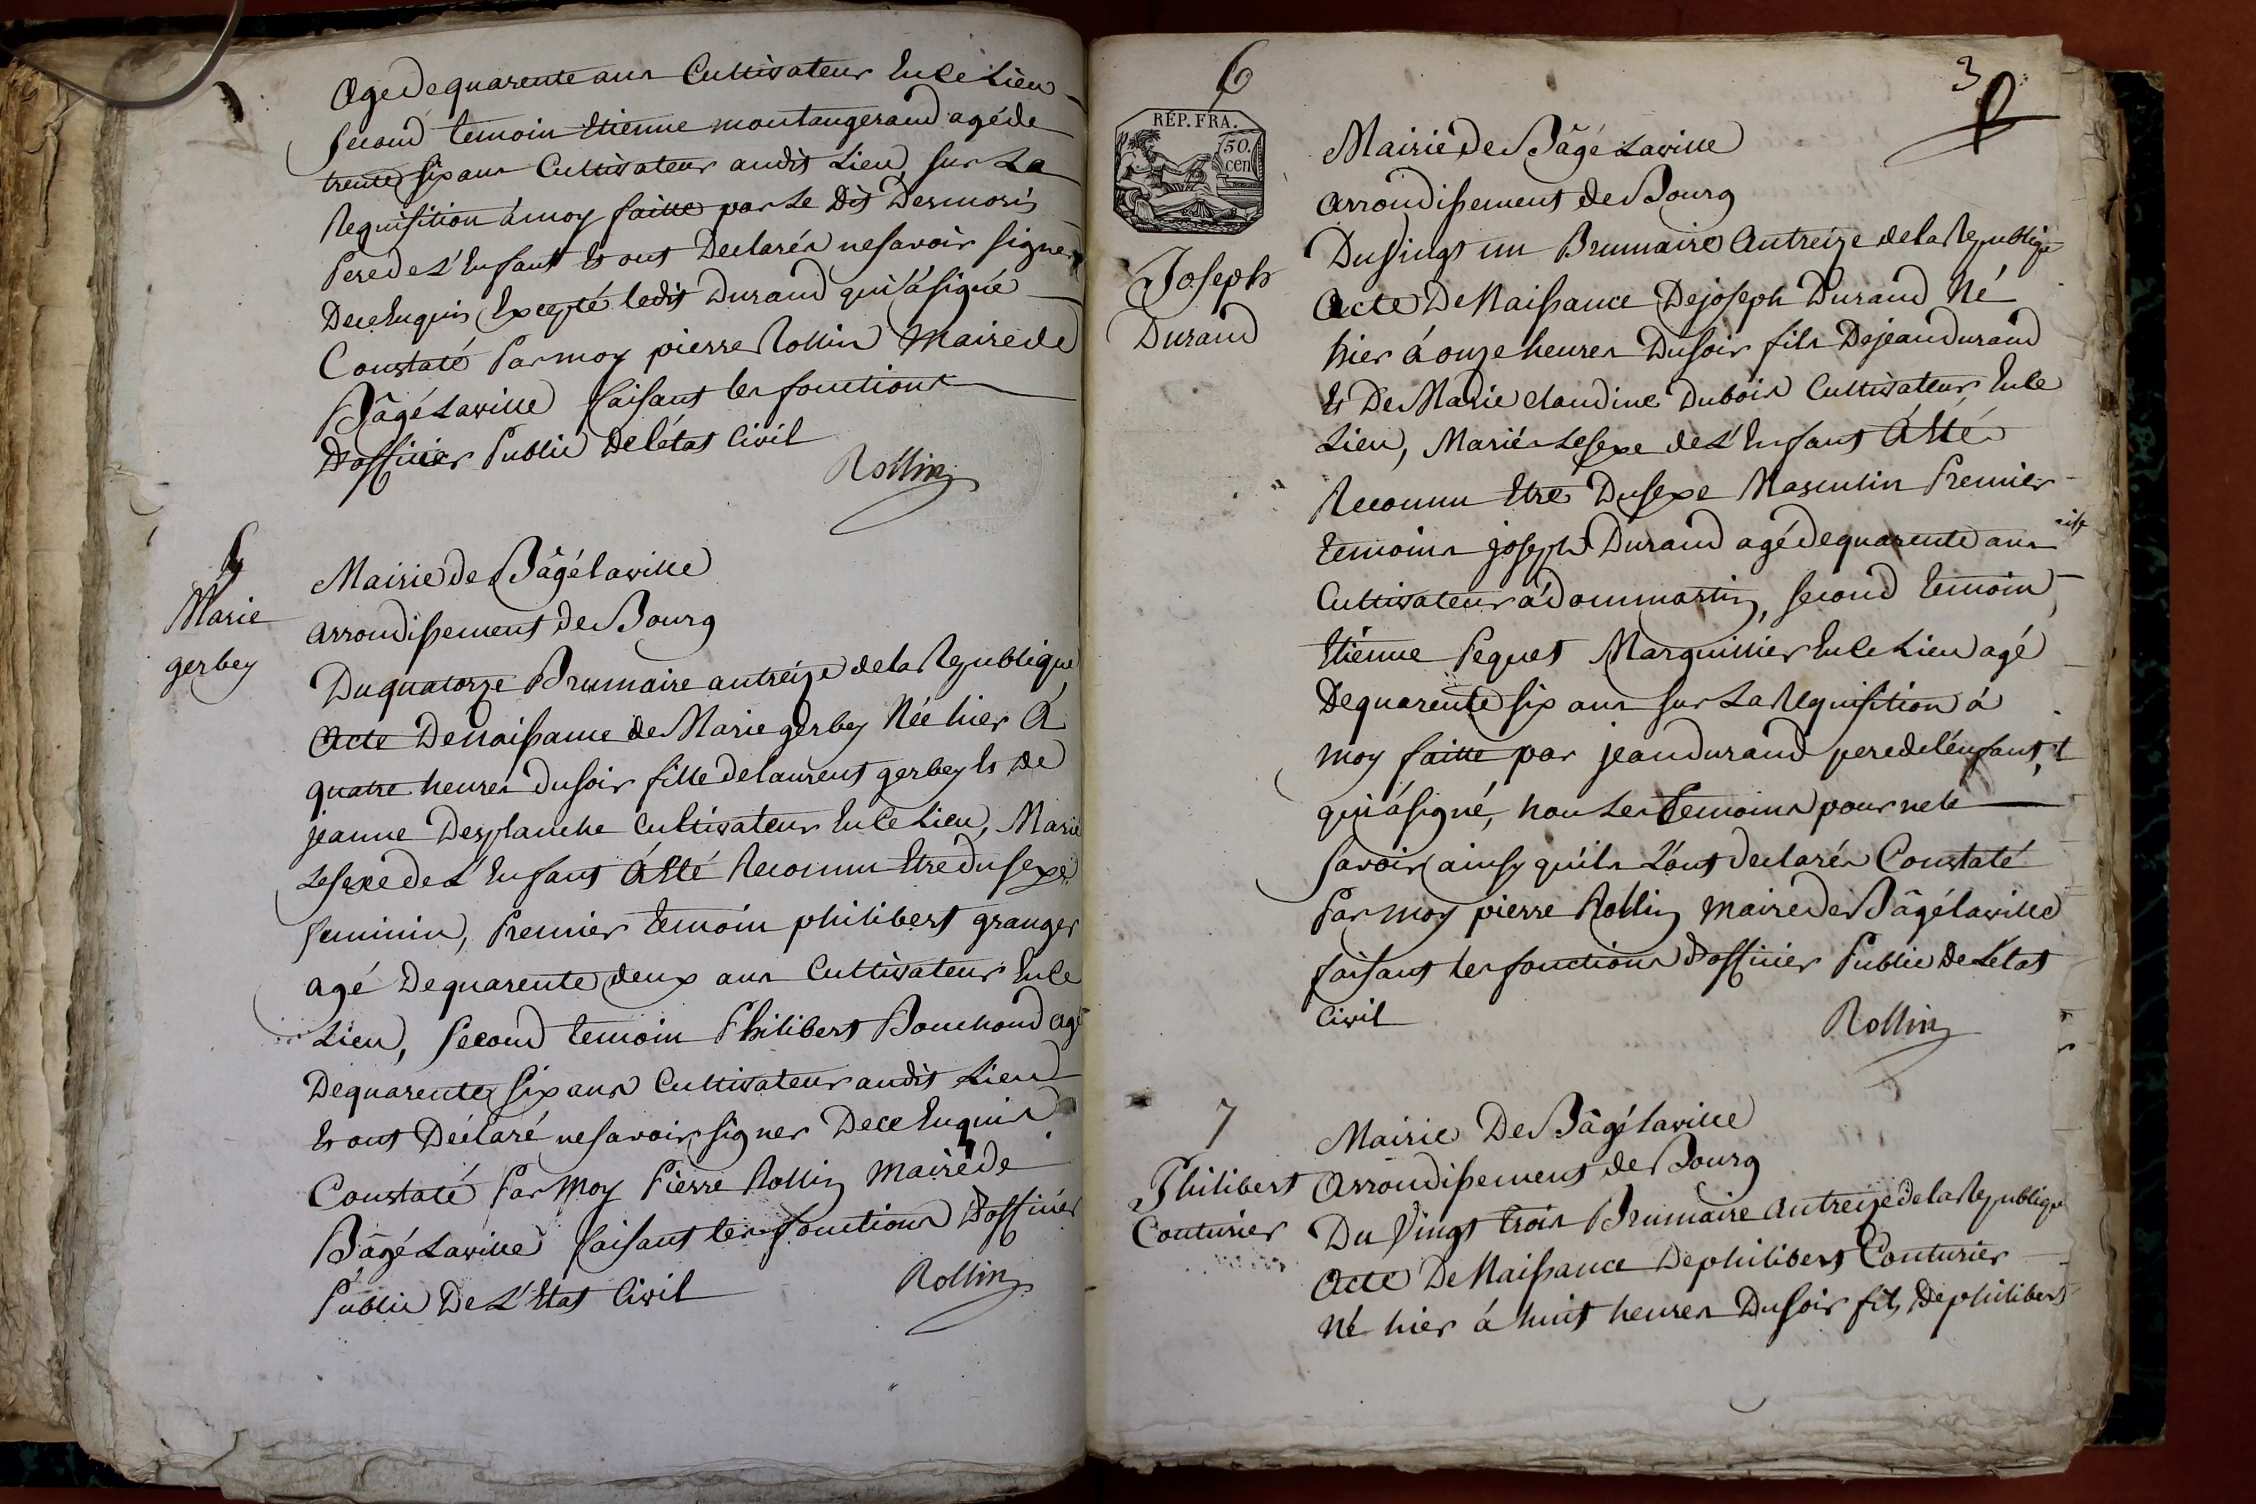 agé de quarente ans Cultivateur En Ce Lieu
second temoin Etienne montangerand agé de
trente six ans Cultivateur audit Lieu, sur La
Requisition á moy faitte par Le Dit Desmoris
Pere de L'Enfant Et ont Declarés ne savoir signer
De ce Enquis Excepté ledit Durand qui á signé
Constaté Par moy pierre Rollin Maire de
Bâgé Laville faisant les fonctions
D'officier Public De l'état Civil
Rollin
5
Marie
gerbey
Mairie de Bâgé laville
arrondissement De Bourg
Du quatorze Brumaire an treize de la Republique
Acte De naissance de Marie gerbey Née hier á
quatre heures du soir fille de laurent gerbey Et de
jeanne Desplanche Cultivateur En Ce Lieu, Marié
Le sexe de L'Enfant á Eté Reconnu Etre du sexe
feminin, Premier temoin philibert granger
agé De quarente deux ans Cultivateur En Ce
Lieu, second temoin Philibert Bouchoud agé
De quarente six ans Cultivateur audit Lieu
Et ont Déclaré ne savoir signer De ce Enquis
Constaté Par Moy Pierre Rollin Maire de
Bâgé Laville faisant les fonctions D'officier
Public De L'Etat Civil
Rollin
3
6
RÉP. FRA.
50.
cen
Joseph
Durand
Mairie De Bâgé Laville
arrondissement de Bourg
Du Vingt un Brumaire An treize de la Republique
Acte De Naissance De joseph Durand Né
hier á onze heures Du soir fils De jean durand
Et De Marie claudine Dubois Cultivateur En Ce
Lieu, Mariés Le sexe de L'Enfant á Eté
Reconnu Etre Du sexe Masculin Premier
temoins joseph Durand agé de quarente ans
Cultivateur á dommartin, second temoin
Etienne Pequet Marguillier En Ce Lieu agé
De quarente six ans sur La Requisition á
moy faitte par jean durand pere de l'enfant,
qui á signé, non Les temoins pour ne le
savoir ainsy qu'ils L'ont declarés Constaté
Par moy pierre Rollin Maire de Bâgé laville
faisant les fonctions D'officier Public De L'état
Civil
Rollin
7
Philibert
Couturier
Mairie De Bâgé laville
Arrondissement de Bourg
Du Vingt trois Brumaire an treize de la Republique
Acte De Naissance De philibert Couturier
Né hier á huit heures Du soir fils De philibert